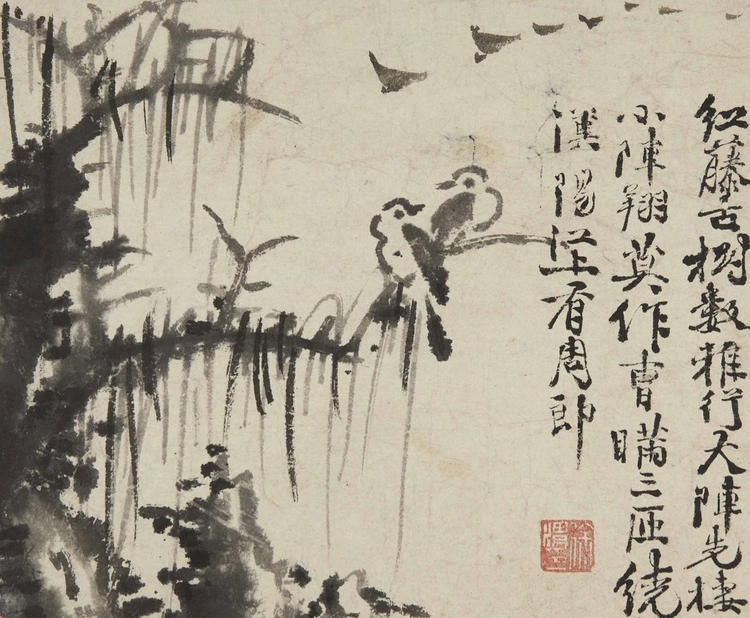 紅藤古樹數雅行大陣先棲
小陣翔莫作曹瞞三匝繞
漢陽江上有周郎